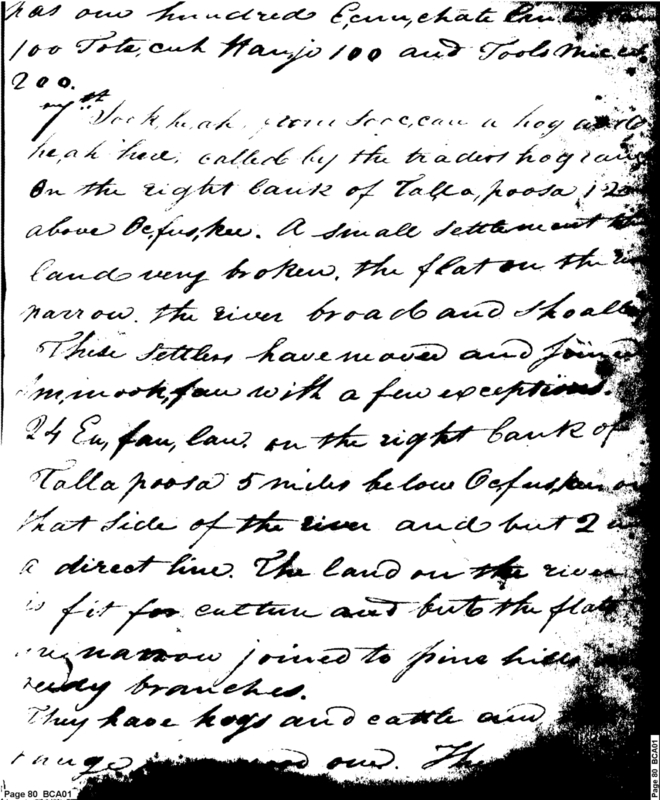 has one hundred E,cun,chate Em
100 Tote, cuh Haujo 100 and Tools Micco
200.
Sock,he,ah, from Socc,cau a hog and
he,ah here, called by the traders hog range
On the right bank of Talla,poosa 12
above Oc,fus,kee. A small settlement the
land very broken. the flat on the river
narrow. the river broad and shoally
These settlers have moved and joined
Im,mook,fau with a few exceptions.
24 Eu,fau,lau. on the right bank of
Talla poosa 5 miles below Oc,fus,kee on
that side of the river and but 2
a direct line. The land on the river
is fit for culture and but the flats
are narrow joined to pine hills
reedy branches.
They have hogs and cattle and
range good one. The
Page 80 BCA01
Page 80 BCA01